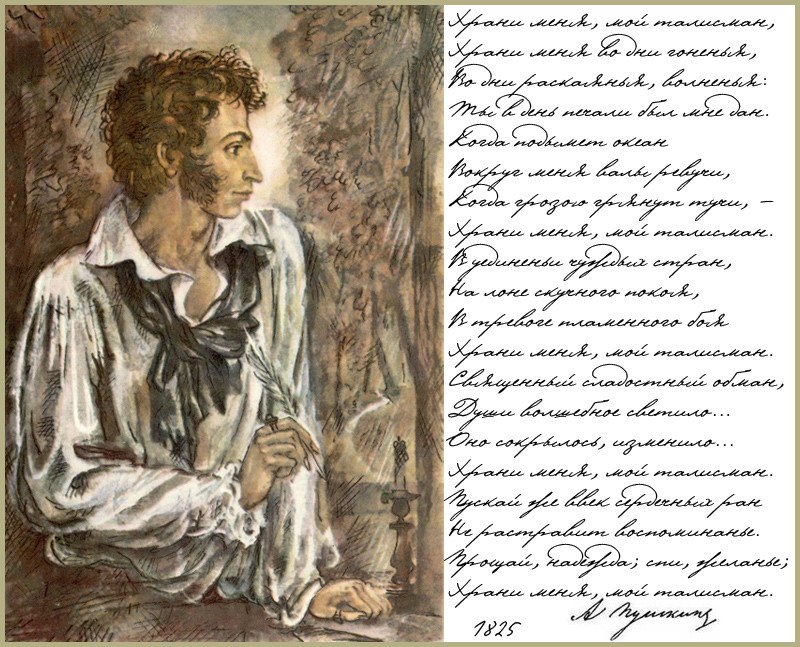 Храни меня, мой талисман,
Храни меня во дни гоненья,
Во дни раскаянья, волненья:
Ты в день печали был мне дан.
Когда подымет океан
Вокруг меня валы ревучи,
Когда грозою грянут тучи, –
Храни меня, мой талисман.
В уединеньи чуждых стран,
На лоне скучного покоя,
В тревоге пламенного боя
Храни меня, мой талисман.
Священный сладостный обман,
Души волшебное светило...
Оно сокрылось, изменило...
Храни меня, мой талисман.
Пускай же ввек сердечных ран
Не растравит воспоминанье.
Прощай, надежда; спи, желанье;
Храни меня, мой талисман.
1825 А Пушкинъ